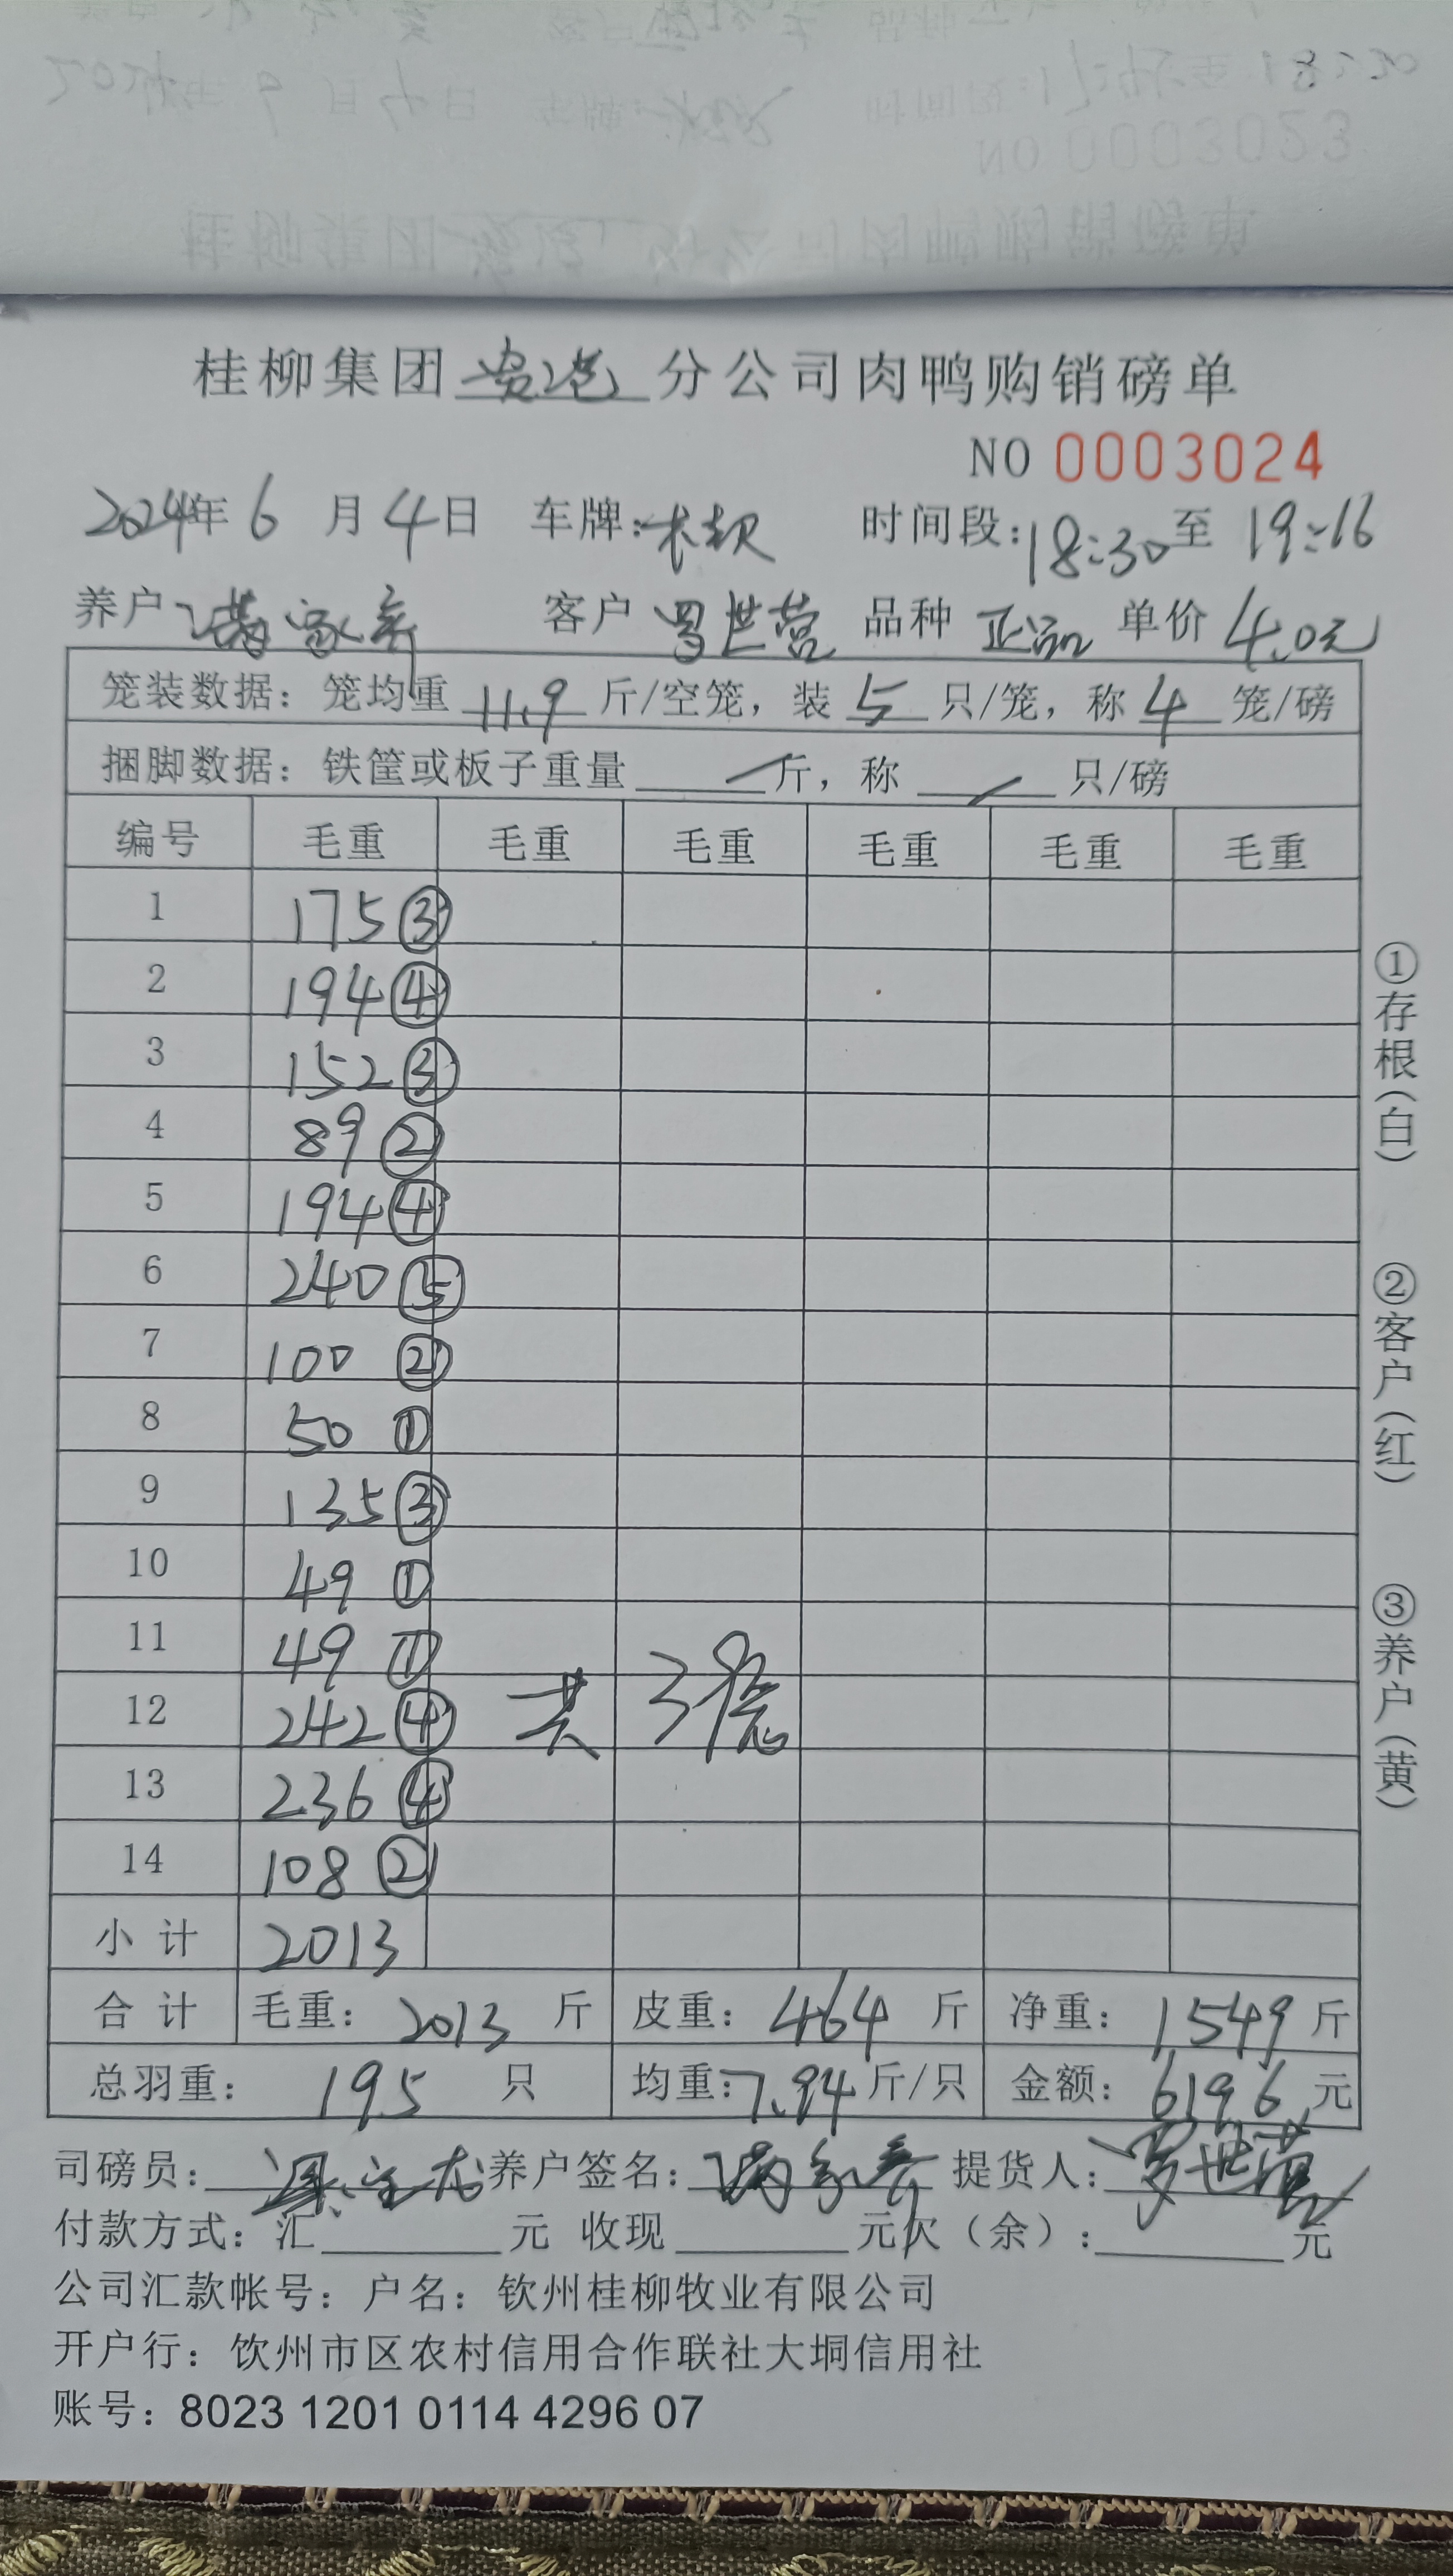 NO 0003023
桂柳集团贵港分公司肉鸭购销磅单
NO 0003024
2024年6月4日 车牌: 时间段:18:30至19:16
养户 客户 罗世营 品种 正品 单价 4.0元
笼装数据: 笼均重 11.9 斤/空笼, 装 5 只/笼, 称 4 笼/磅
捆脚数据: 铁筐或板子重量 / 斤, 称 / 只/磅
编号 毛重 毛重 毛重 毛重 毛重 毛重
1 175 ③
2 194 ④
3 152 ③
4 89 ②
5 194 ④
6 240 ⑤
7 100 ②
8 50 ①
9 135 ③
10 49 ①
11 49 ①
12 242 ④ 共 39笼
13 236 ④
14 108 ②
小计 2013
合计 毛重: 2013 斤 皮重: 464 斤 净重: 1549 斤
总羽重: 195 只 均重: 7.94 斤/只 金额: 6196 元
司磅员: 养户签名: 提货人: 罗世营
付款方式: 汇 元 收现 元欠(余): 元
公司汇款帐号: 户名: 钦州桂柳牧业有限公司
开户行: 饮州市区农村信用合作联社大垌信用社
账号: 8023 1201 0114 4296 07
①存根(白)
②客户(红)
③养户(黄)